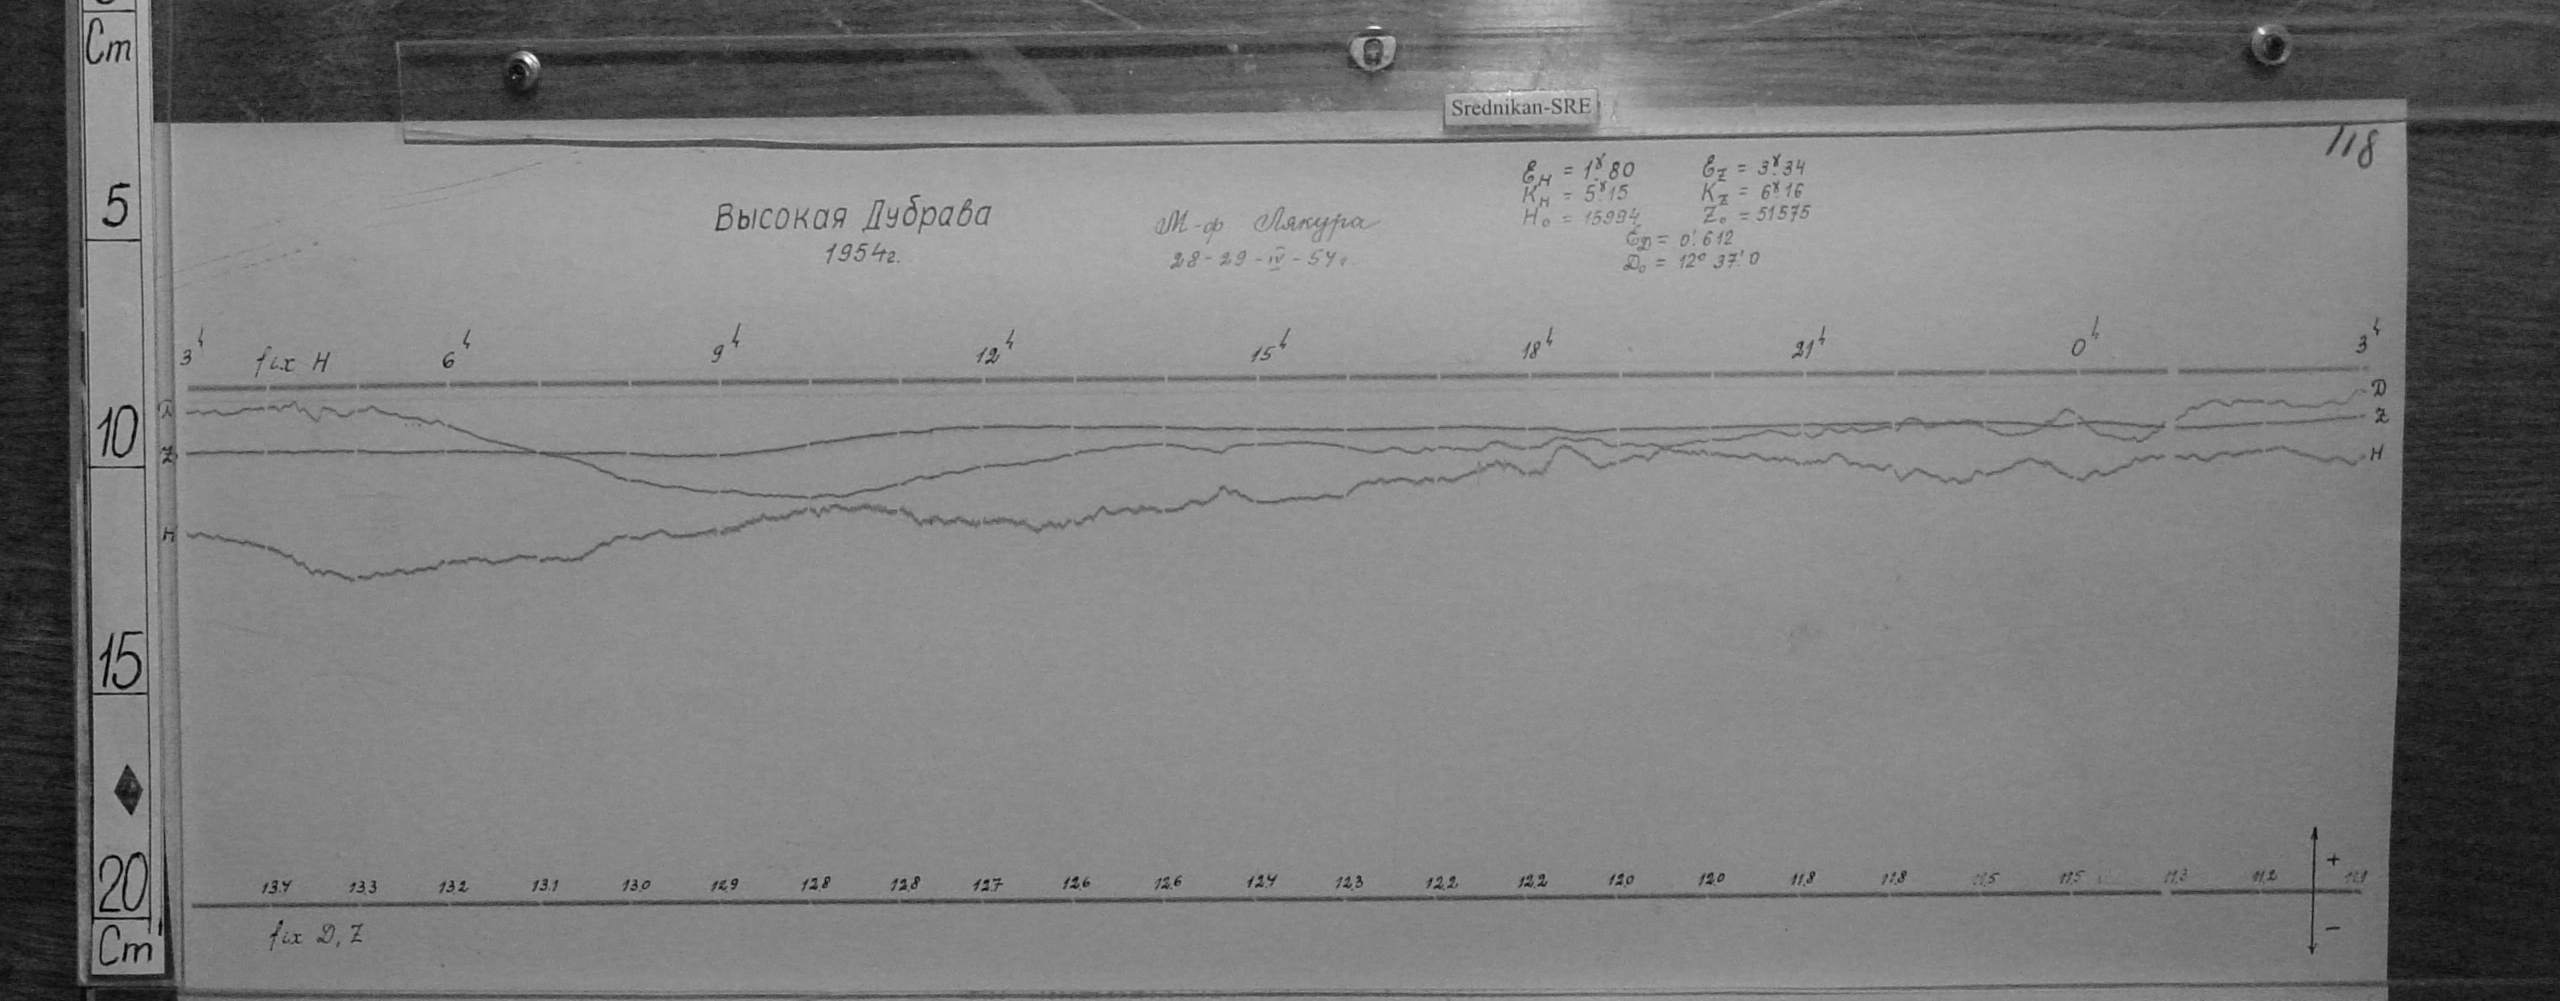 Cm
5
10
15
20
Cm
Srednikan-SRE
118
Высокая Дубрава
1954г.
М-ф Лякура
28-29-IV-54г.
ƐH = 1ˠ.80 ƐZ = 3ˠ.34
KH = 5ˠ.15 KZ = 6ˠ.16
H₀ = 15994 Z₀ = 51575
ƐD = 0'.612
D₀ = 12° 37'.0
3ʰ fix H 6ʰ 9ʰ 12ʰ 15ʰ 18ʰ 21ʰ 0ʰ 3ʰ
D
Z
H
D
Z
H
13.4 13.3 13.2 13.1 13.0 12.9 12.8 12.8 12.7 12.6 12.6 12.4 12.3 12.2 12.2 12.0 12.0 11.8 11.8 11.5 11.5 11.3 11.2 11.1
+
-
fix D, Z